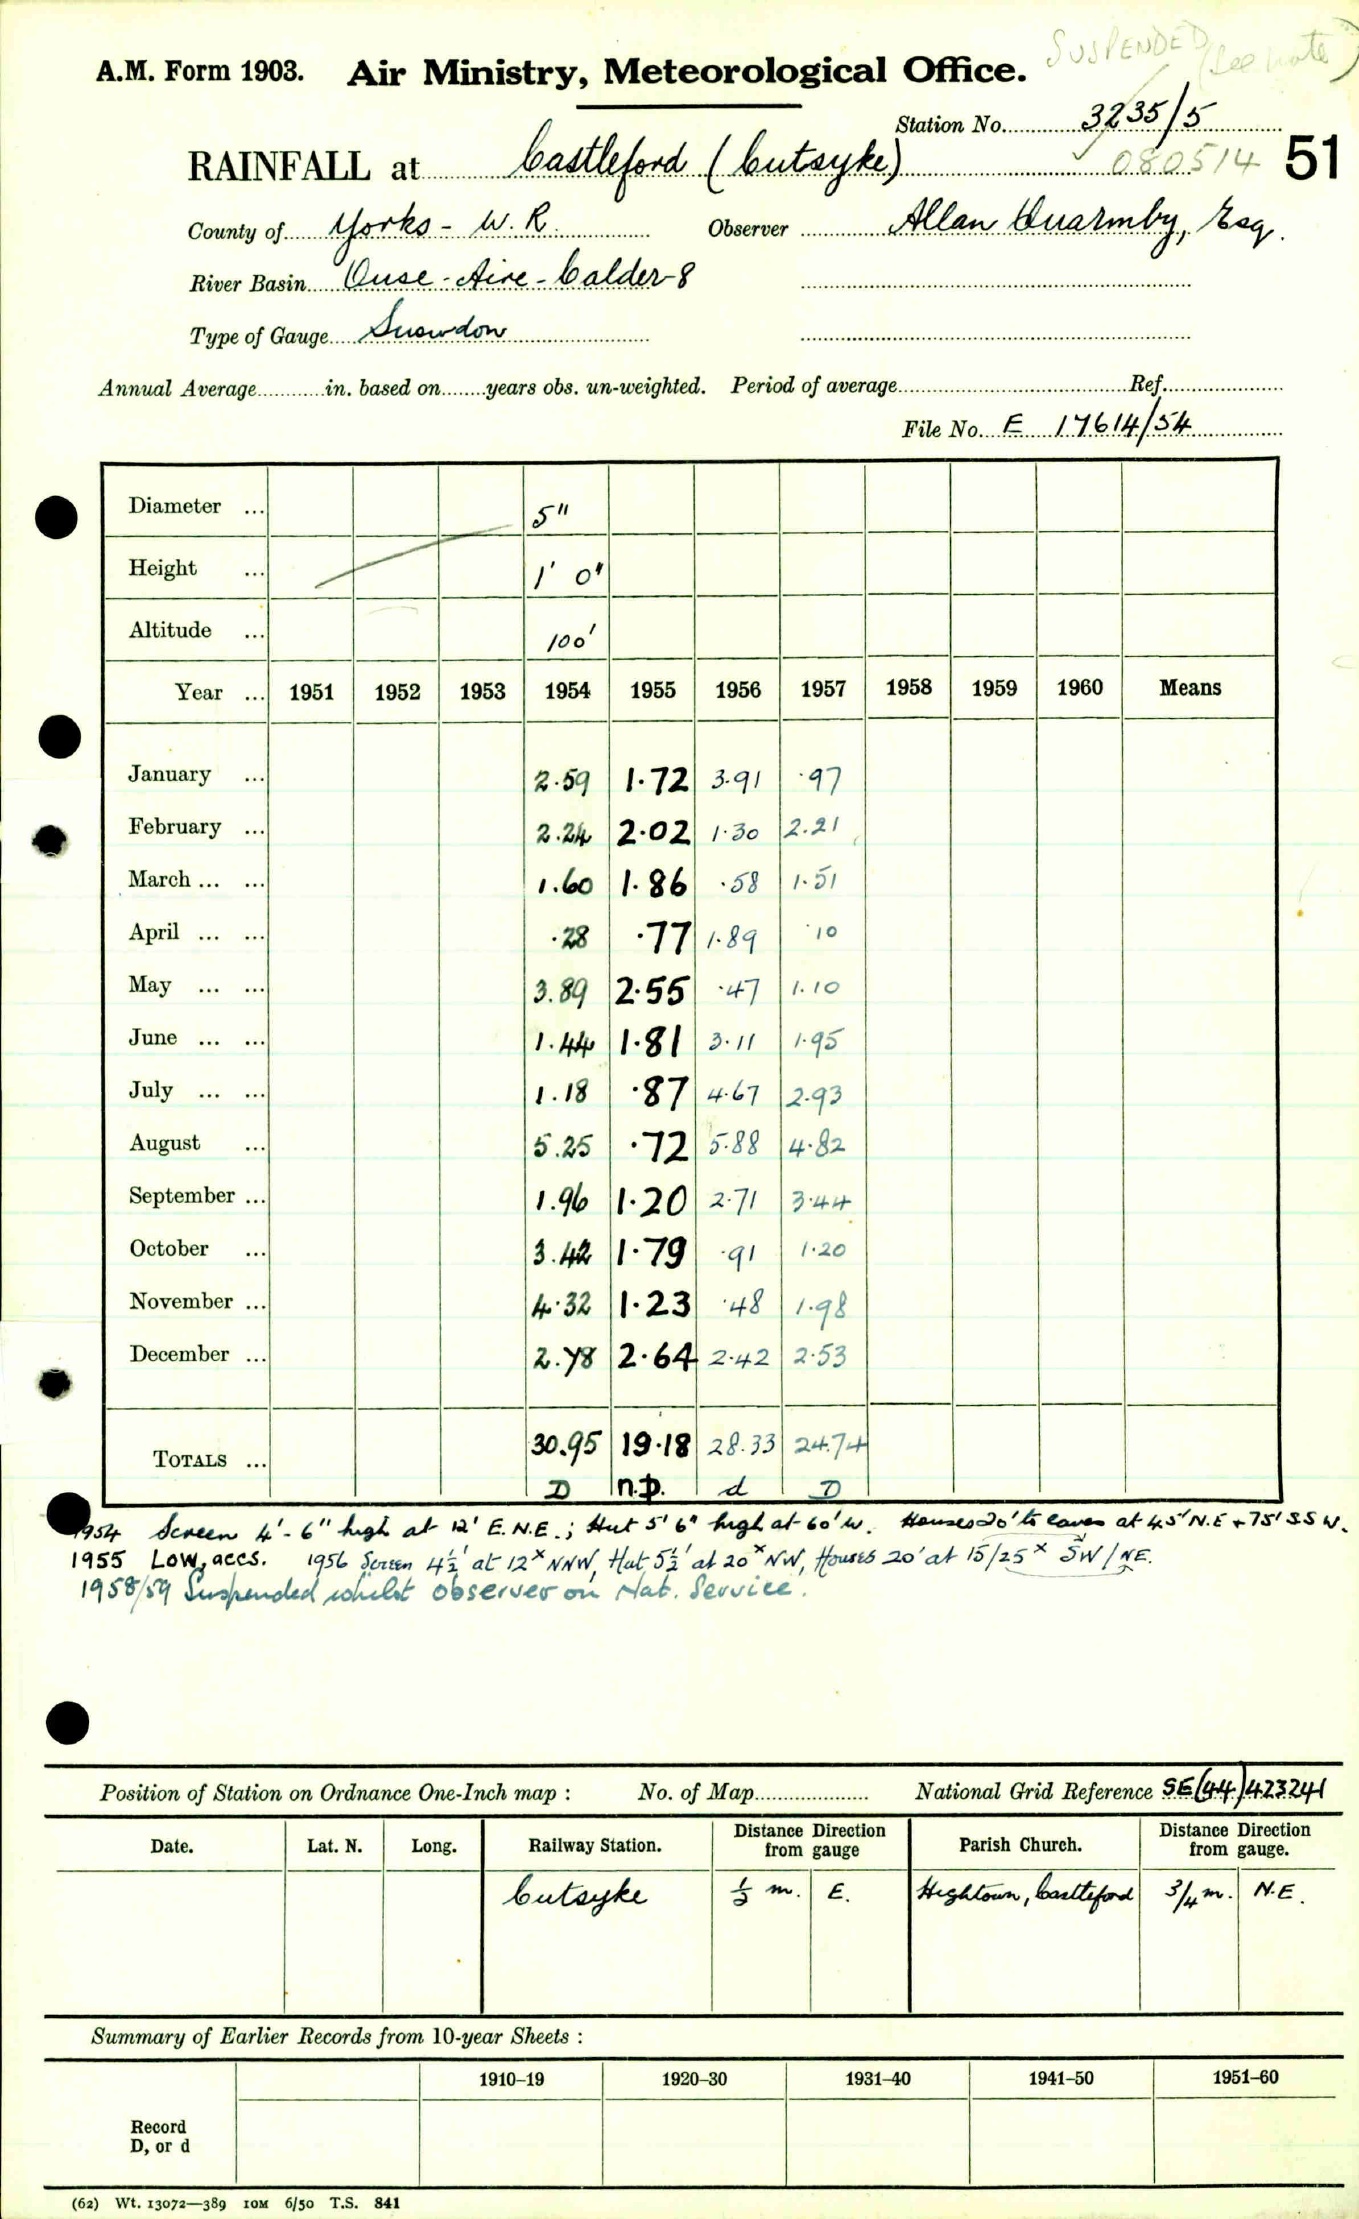 SUSPENDED (See Note)
A.M. Form 1903. Air Ministry, Meteorological Office.
Station No. 3235/5
RAINFALL at Castleford (Cutsyke) 080514 51
County of Yorks - W.R. Observer Allan Quarmby, Esq.
River Basin Ouse-Aire-Calder-8
Type of Gauge Snowdon
Annual Average in. based on years obs. un-weighted. Period of average Ref.
File No. E 17614/54
Diameter ... 5"
Height ... 1' 0"
Altitude ... 100'
Year ... 1951 1952 1953 1954 1955 1956 1957 1958 1959 1960 Means
January ... 2.59 1.72 3.91 .97
February ... 2.24 2.02 1.30 2.21
March ... ... 1.60 1.86 .58 1.51
April ... ... .28 .77 1.89 .10
May ... ... 3.89 2.55 .47 1.10
June ... ... 1.44 1.81 3.11 1.95
July ... ... 1.18 .87 4.67 2.93
August ... 5.25 .72 5.88 4.82
September ... 1.96 1.20 2.71 3.44
October ... 3.42 1.79 .91 1.20
November ... 4.32 1.23 .48 1.98
December ... 2.78 2.64 2.42 2.53
TOTALS ... 30.95 19.18 28.33 24.74
D n.p. d D
1954 Screen 4'-6" high at 12' E.N.E.; Hut 5' 6" high at 60' W. Houses 20' to eaves at 45' N.E + 75' S.S.W.
1955 Low, accs. 1956 Screen 4½' at 12ˣ NNW, Hut 5½' at 20ˣ NW, Houses 20' at 15/25ˣ SW/NE.
1958/59 Suspended whilst observer on Nat. Service.
Position of Station on Ordnance One-Inch map : No. of Map National Grid Reference SE(44)423241
Date. Lat. N. Long. Railway Station. Distance Direction from gauge Parish Church. Distance Direction from gauge.
Cutsyke ½ m. E. Hightown, Castleford 3/4 m. N.E.
Summary of Earlier Records from 10-year Sheets :
1910–19 1920–30 1931–40 1941–50 1951–60
Record
D, or d
(62) Wt. 13072—389 10M 6/50 T.S. 841